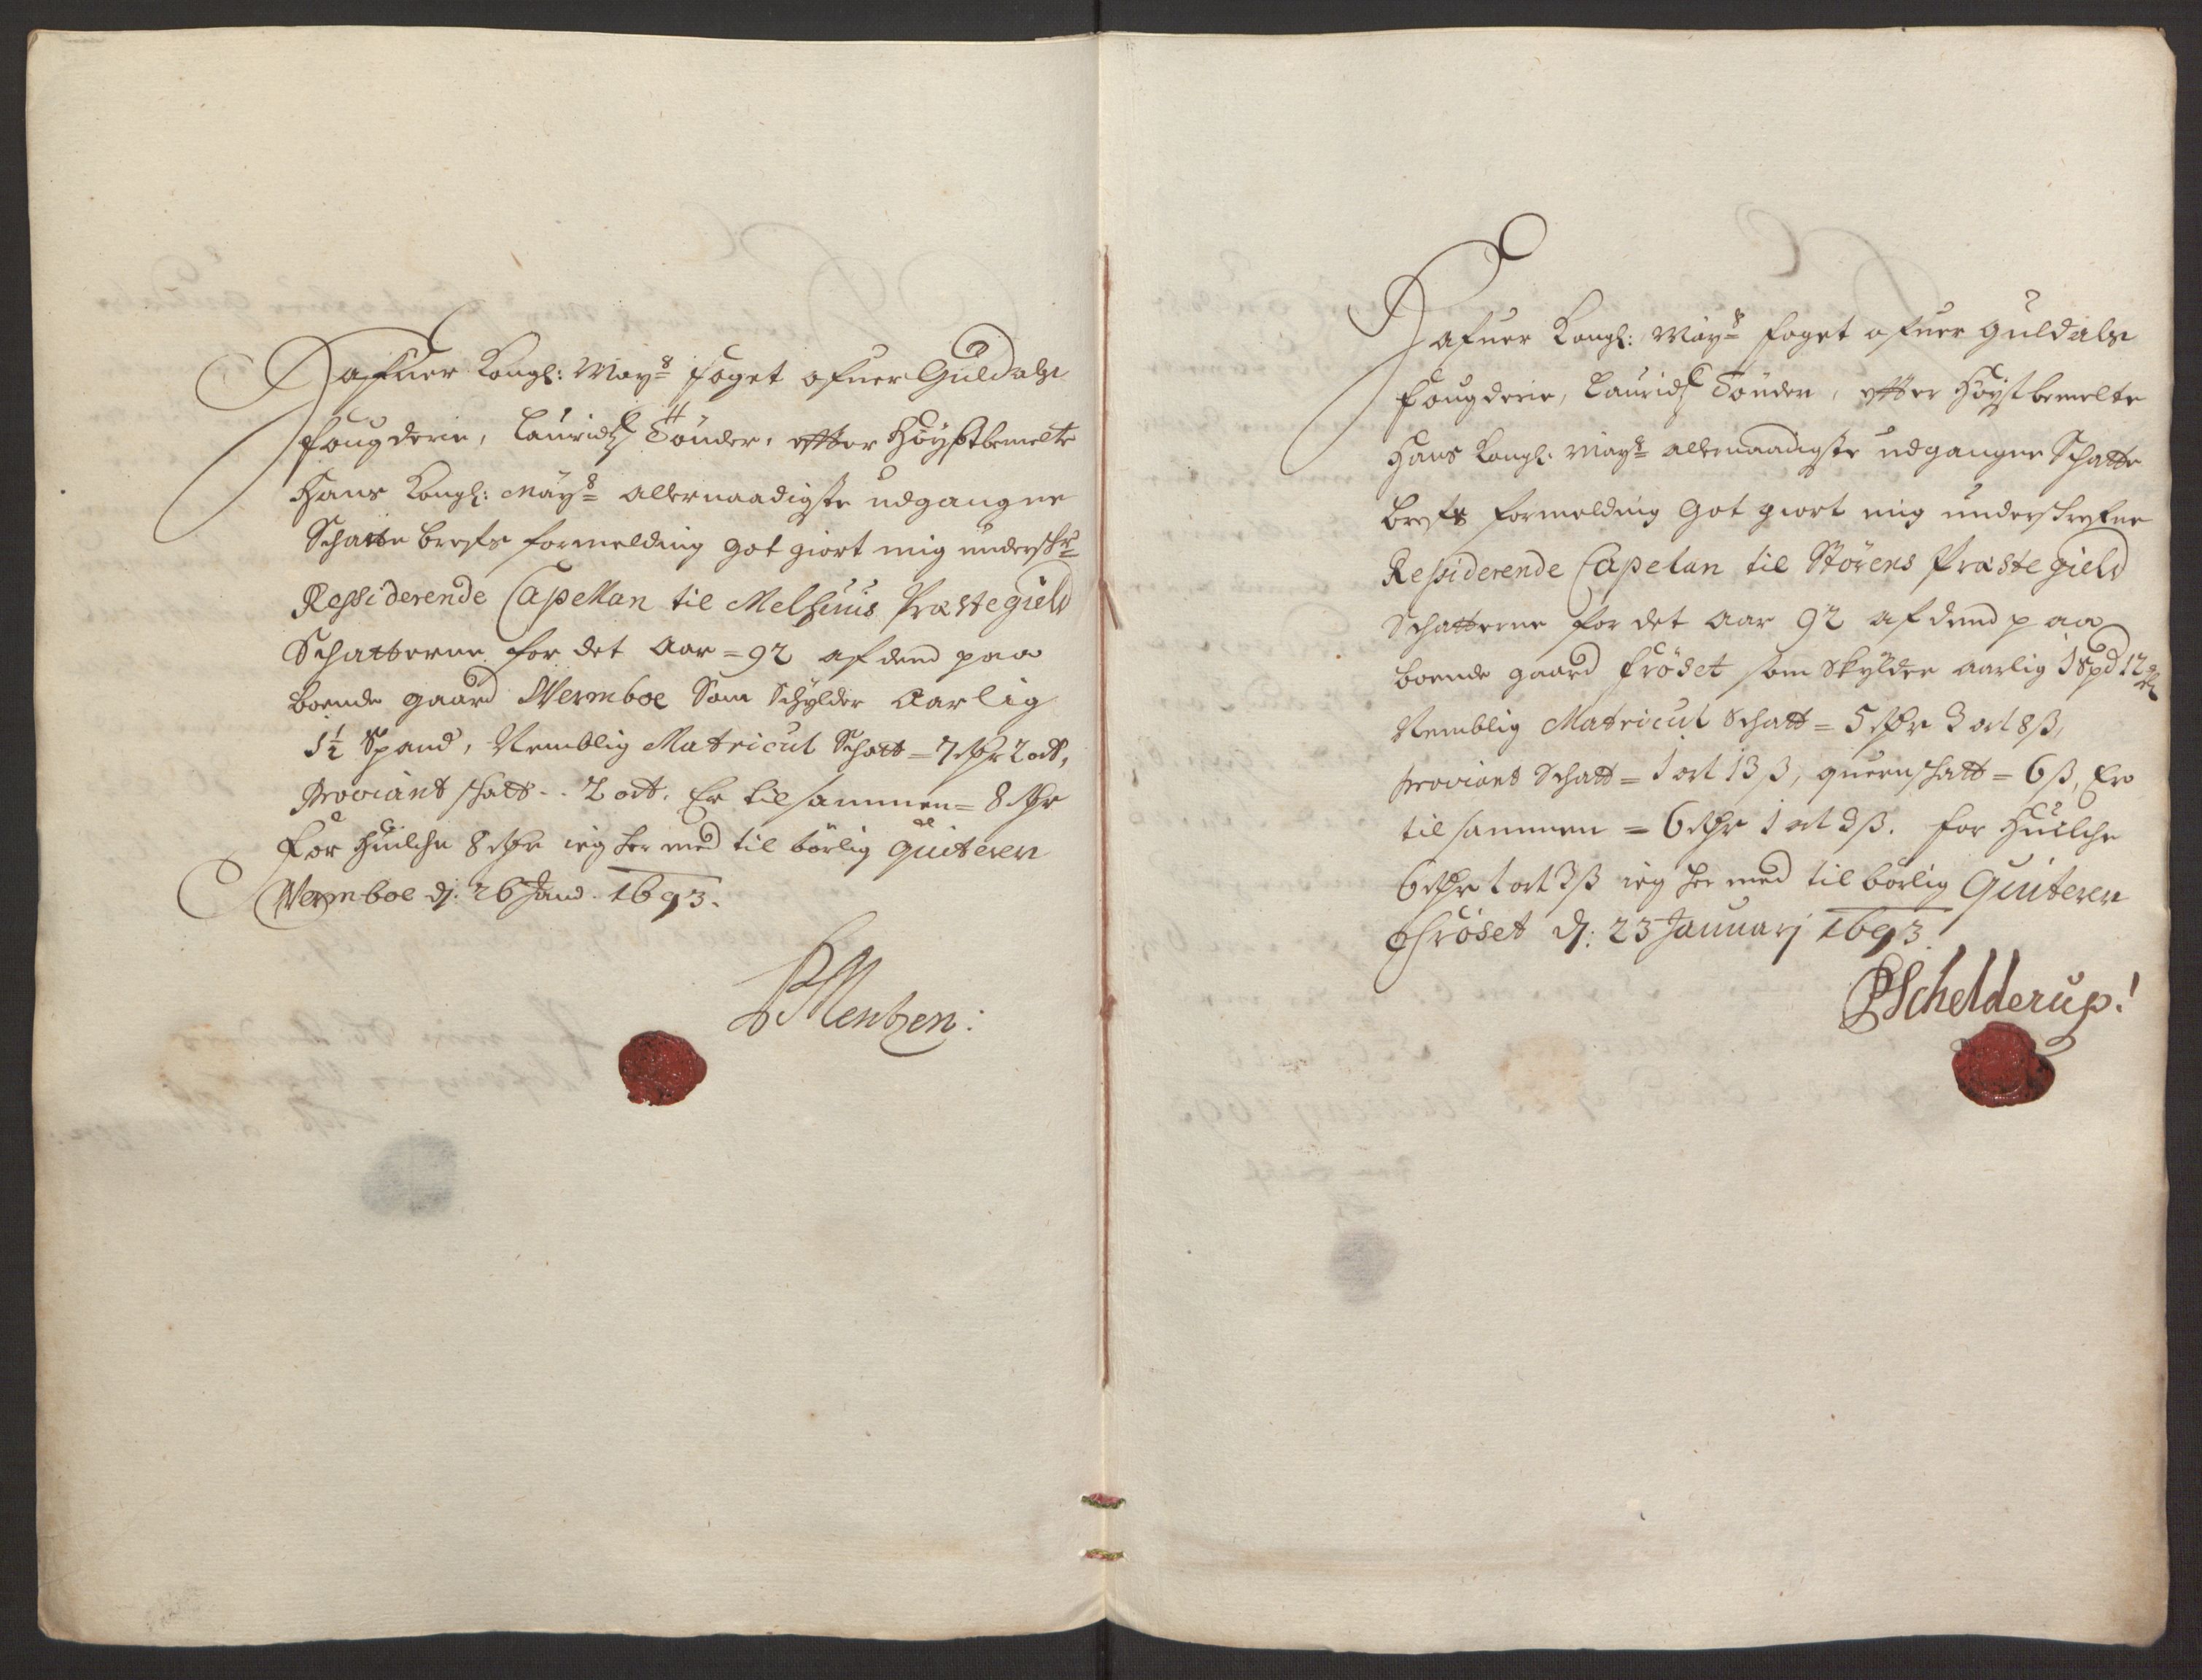 Hafuer Kongl: May:s foget ofuer Guldals
fougderie, Lauridtz Tönder, effter Höystbemelte
Hans Kongl: May:s allernaadigste udgangne
Schatte brefs formelding got giort mig underschr:
Ressiderende Capellan til Melhuus Præstegield
Schatterne for det Aar = 92 af dend paa
boende gaard Wermboe Som Schylder Aarlig
1½ Spand, Nemblig Matricul Schatt = 7 rdr 2 ort,
Proviant schatt .. 2 ort. Er tilsammen = 8 rdr
For huilche 8 rdr ieg her med til börlig quiterer
Wermboe d: 26 Janu. 1693.
Mentzen:
Hafuer Kongl: May:s foget ofuer Guldals
fougderie, Lauridtz Tönder, effter Höystbemelte
Hans Kongl: May:s allernaadigste udgangne Schatte
brefs formelding Got giort mig underschrefne
Ressiderende Capelan til Störens Præstegield
Schatterne for det Aar 92 af dend paa
boende gaard Fröset som Skylder aarlig 1 Spd 12
Nemblig Matricul Schatt = 5 rdr 3 ort 8 ß,
Proviant Schatt = 1 ort 13 ß, quernschatt = 6 ß, Er
tilsammen = 6 rdr 1 ort 3 ß. for Huilche
6 rdr 1 ort 3 ß ieg her med til börlig Quiterer
Fröset d: 23 Januarj 1693
P Schelderup!